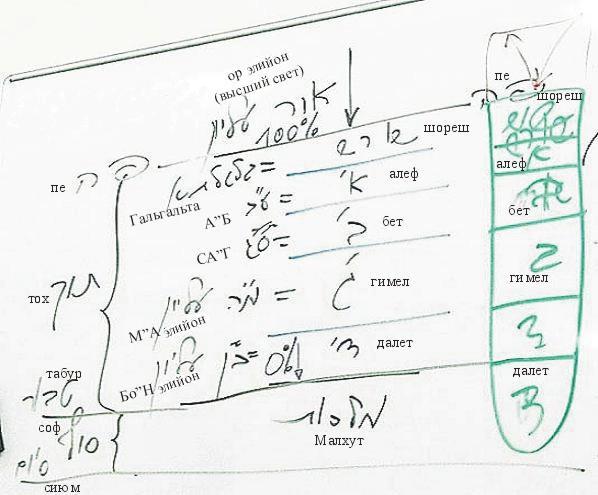 ор элийон
(высший свет)
אור עליון
100%
пе
פה
шореш
שורש
Гальгальта
גלגלתא =
А"Б
ע"ב = א'
алеф
СА"Г
ס"ג = ב'
бет
тох
תוך
М"А элийон
מ"ה עליון = ג'
гимел
Бо"Н элийон
ב"ן עליון = 0% ד'
далет
табур
טבור
соф
סוף
מלכות
Малхут
סיום
сиюм
пе
פה
шореш
алеф
бет
гимел
ג
далет
ד